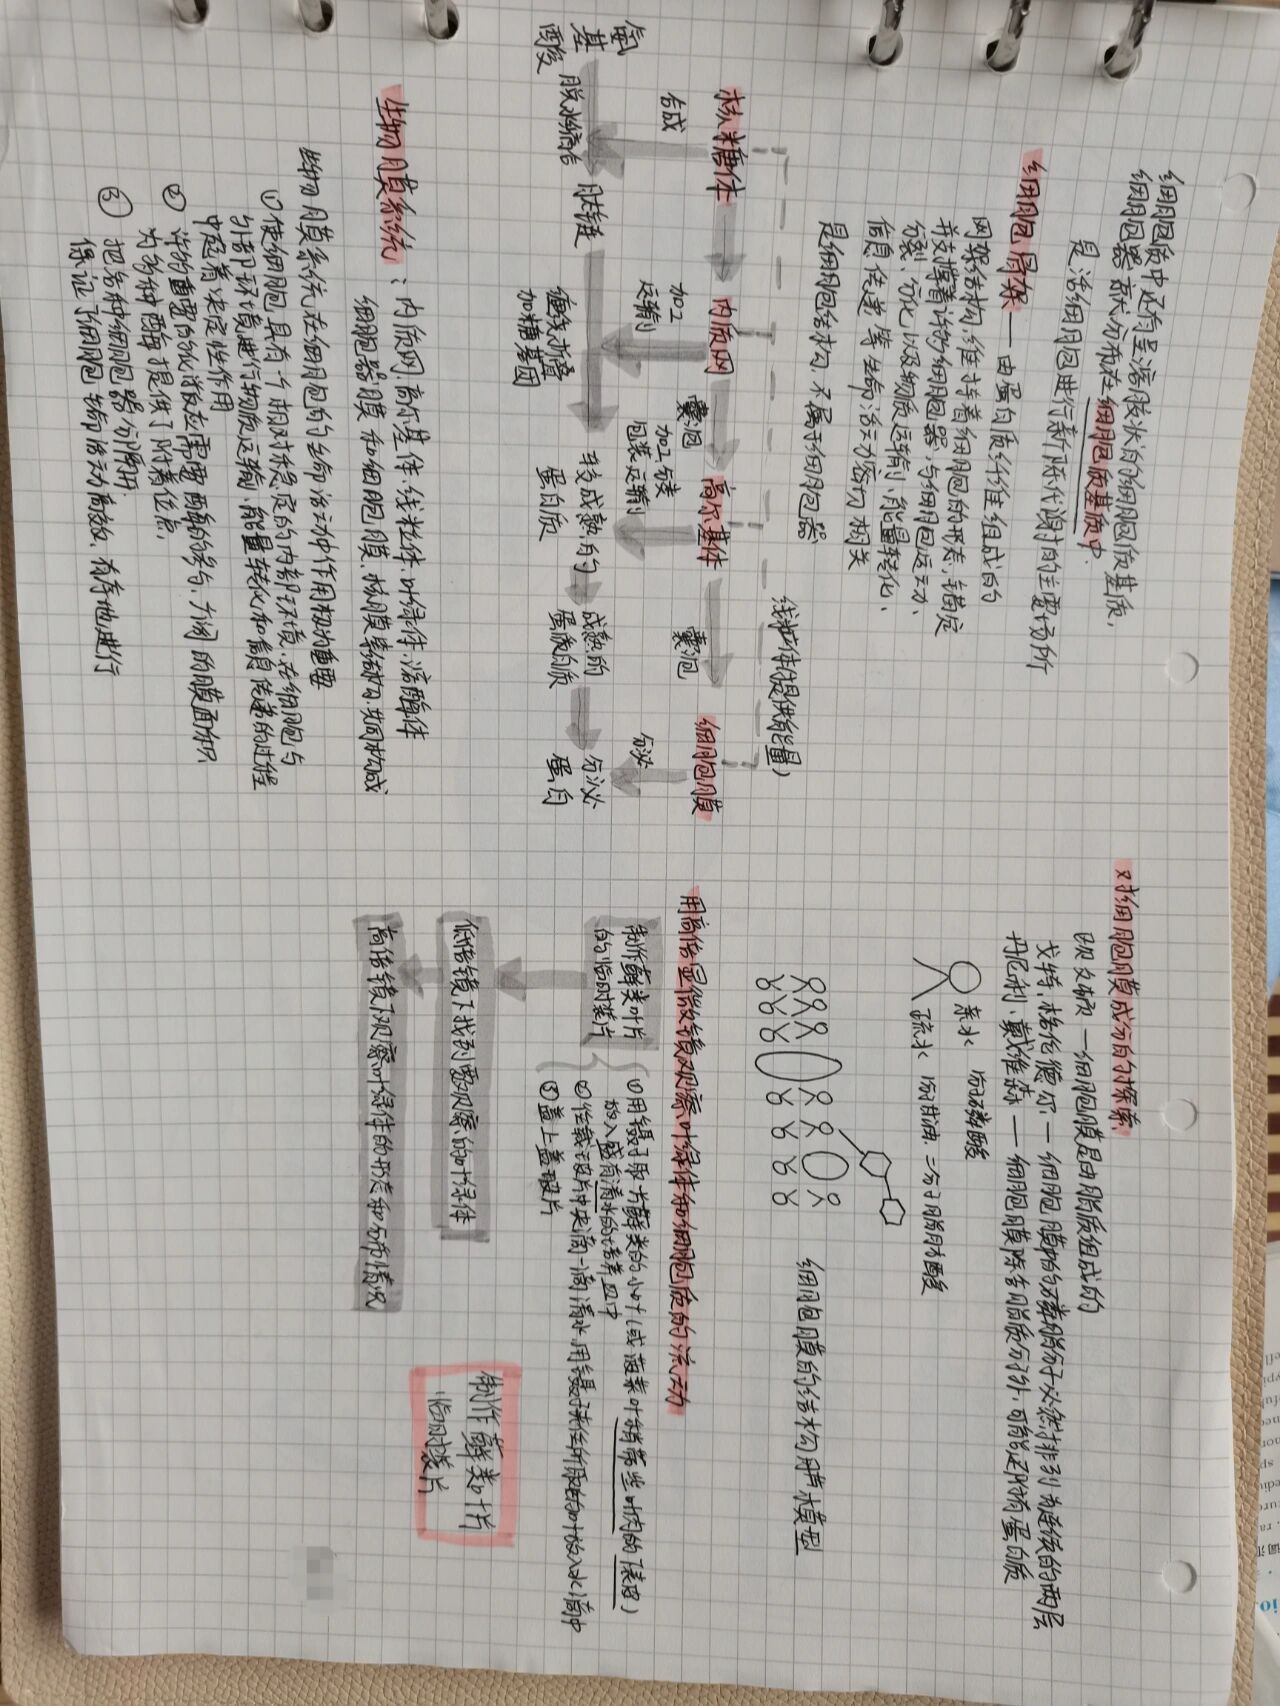 细胞质中还有呈溶胶状的细胞质基质，
细胞器就分布在细胞质基质中.
是活细胞进行新陈代谢的主要场所
细胞骨架——由蛋白质纤维组成的
网架结构，维持着细胞的形态，锚定
并支撑着许多细胞器，与细胞运动、
分裂、分化以及物质运输、能量转化、
信息传递等生命活动密切相关
是细胞结构 不属于细胞器
线粒体（提供能量）
核糖体 内质网 囊泡 高尔基体 囊泡 细胞膜
合成 加工 运输 加工 包装 运输 分泌
氨基酸 脱水缩合 肽链
盘曲折叠
加糖基团
较成熟的
蛋白质
成熟的
蛋白质
分泌
蛋白
生物膜系统：内质网 高尔基体 线粒体 叶绿体 溶酶体
细胞器膜和细胞膜、核膜等结构，共同构成
生物膜系统在细胞的生命活动中作用极为重要
①使细胞具有一个相对稳定的内部环境，在细胞与
外部环境进行物质运输、能量转化和信息传递的过程
中起着决定性作用
②许多重要的化学反应需要酶的参与，广阔的膜面积
为多种酶提供了附着位点，
③把各种细胞器分隔开，
保证了细胞生命活动高效、有序地进行
对细胞膜成分的探索
欧文顿—细胞膜是由脂质组成的
戈特、格伦德尔—细胞膜中的磷脂分子必然排列为连续的两层
丹尼利、戴维森——细胞膜除含脂质分子外，可能还附有蛋白质
亲水 磷酸
疏水 甘油 二分子脂肪酸
细胞膜的结构模型
用高倍显微镜观察叶绿体和细胞质的流动
制作藓类叶片
的临时装片
①用镊子取一片藓类的小叶（或菠菜叶稍带些叶肉的下表皮）
放入盛有清水的培养皿中
②往载玻片中央滴一滴清水，用镊子夹住所取的叶放入水滴中
③盖上盖玻片
低倍镜下找到要观察的叶绿体
高倍镜下观察叶绿体的形态和分布情况
制作藓类叶片
临时装片